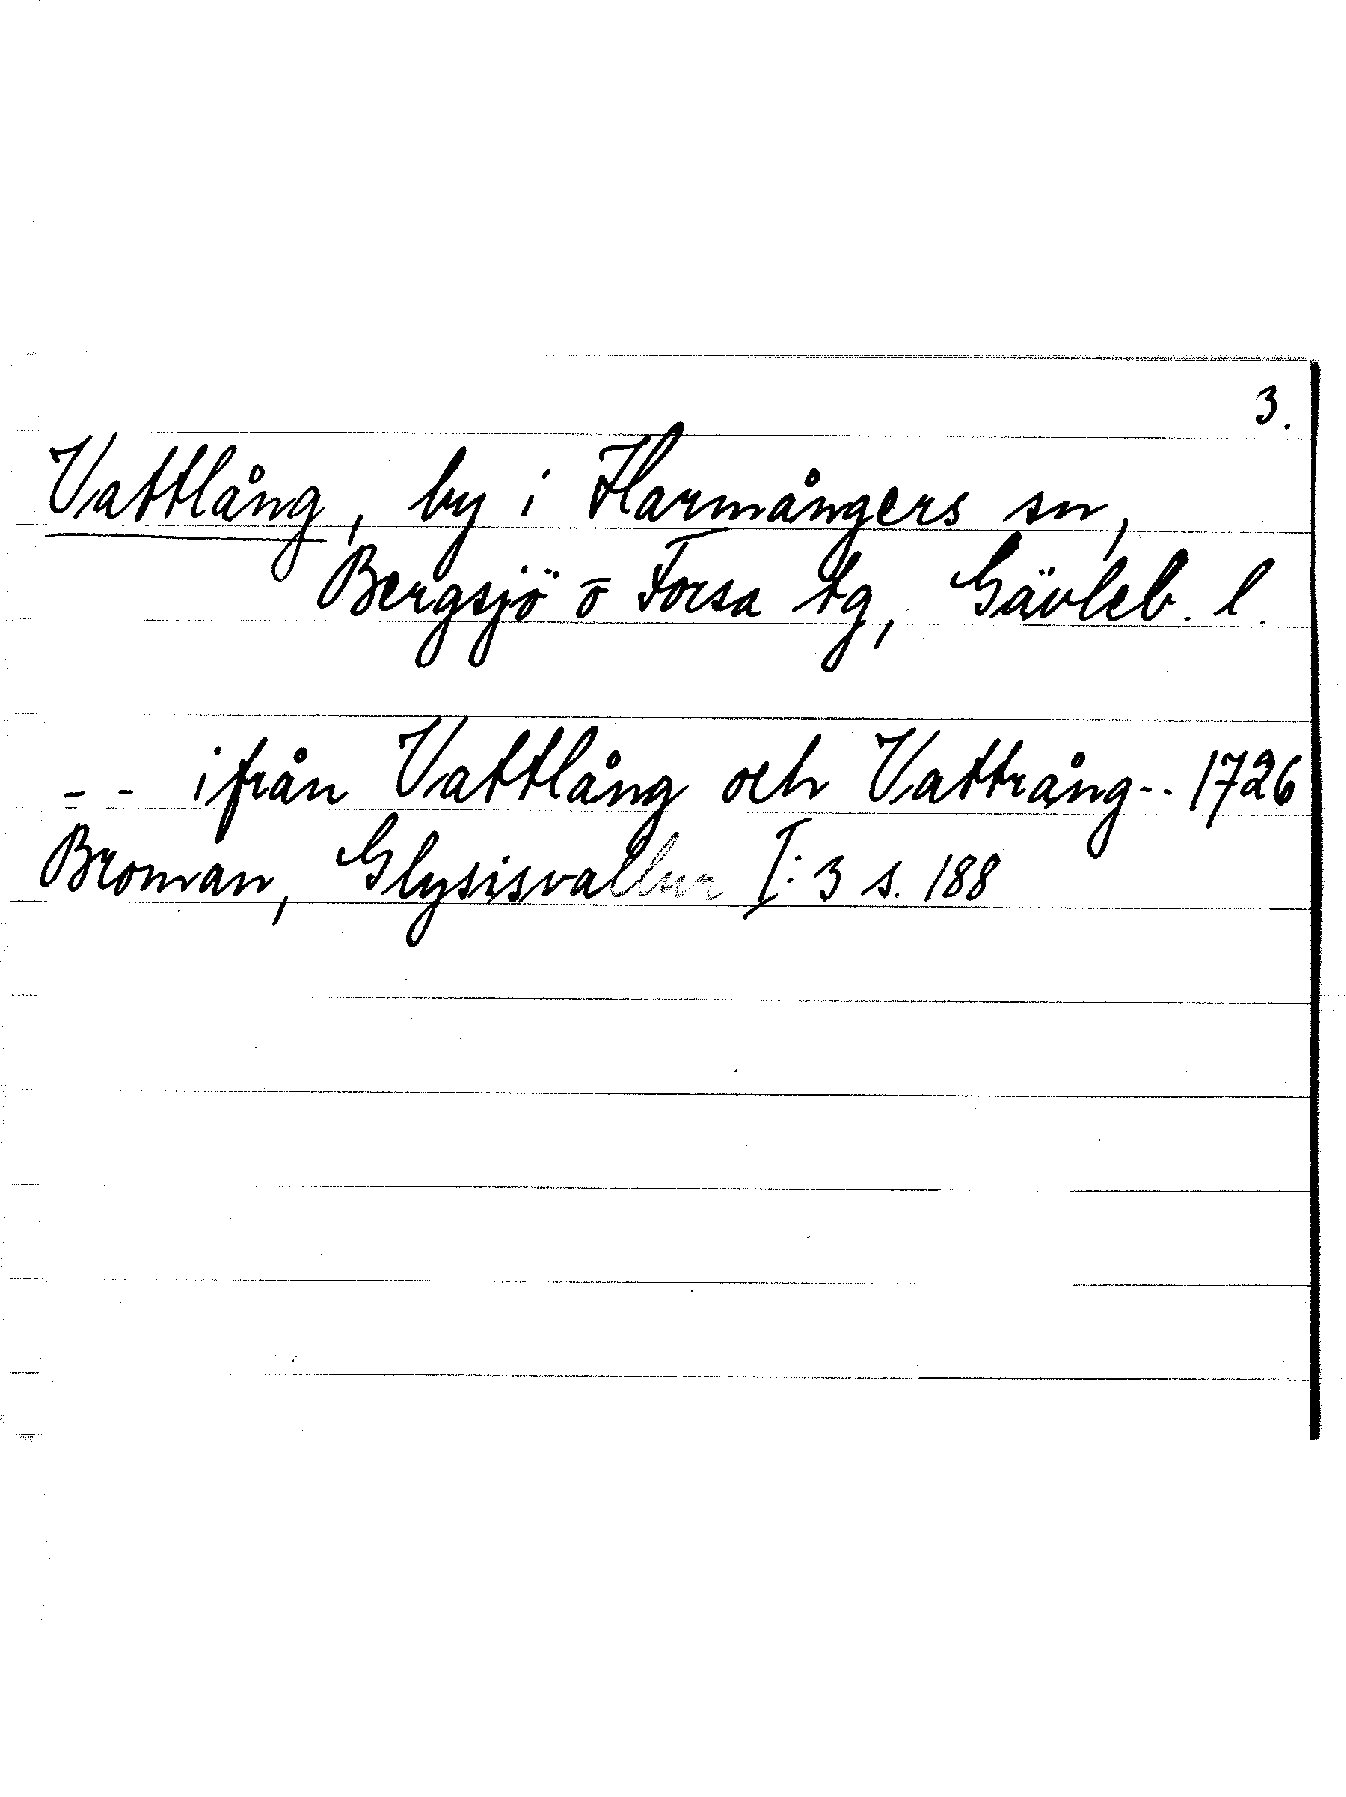 3.
Vattlång, by i Harmångers sn,
Bergsjö o Forsa tg, Gävleb. l.
- - ifrån Vattlång och Vattrång-- 1726
Broman, Glysisvallur I:3 s. 188